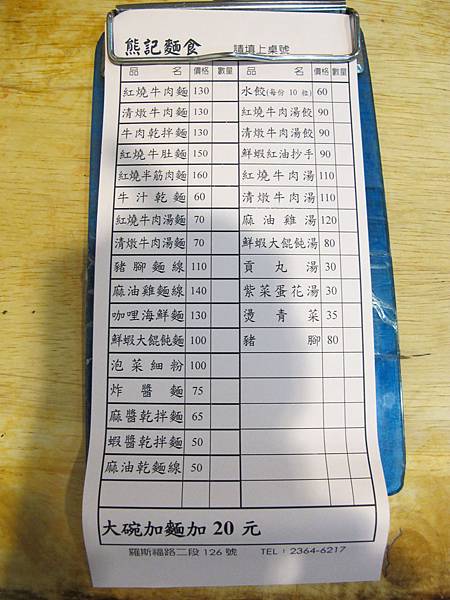 熊記麵食 請填上桌號
品名 價格 數量 品名 價格 數量
紅燒牛肉麵 130 水餃(每份 10 粒) 60
清燉牛肉麵 130 紅燒牛肉湯餃 90
牛肉乾拌麵 130 清燉牛肉湯餃 90
紅燒牛肚麵 150 鮮蝦紅油抄手 90
紅燒半筋肉麵 160 紅燒牛肉湯 110
牛汁乾麵 60 清燉牛肉湯 110
紅燒牛肉湯麵 70 麻油雞湯 120
清燉牛肉湯麵 70 鮮蝦大餛飩湯 80
豬腳麵線 110 貢丸湯 30
麻油雞麵線 140 紫菜蛋花湯 30
咖哩海鮮麵 130 燙青菜 35
鮮蝦大餛飩麵 100 豬腳 80
泡菜細粉 100
炸醬麵 75
麻醬乾拌麵 65
蝦醬乾拌麵 50
麻油乾麵線 50
大碗加麵加 20 元
羅斯福路二段 126 號 TEL：2364-6217